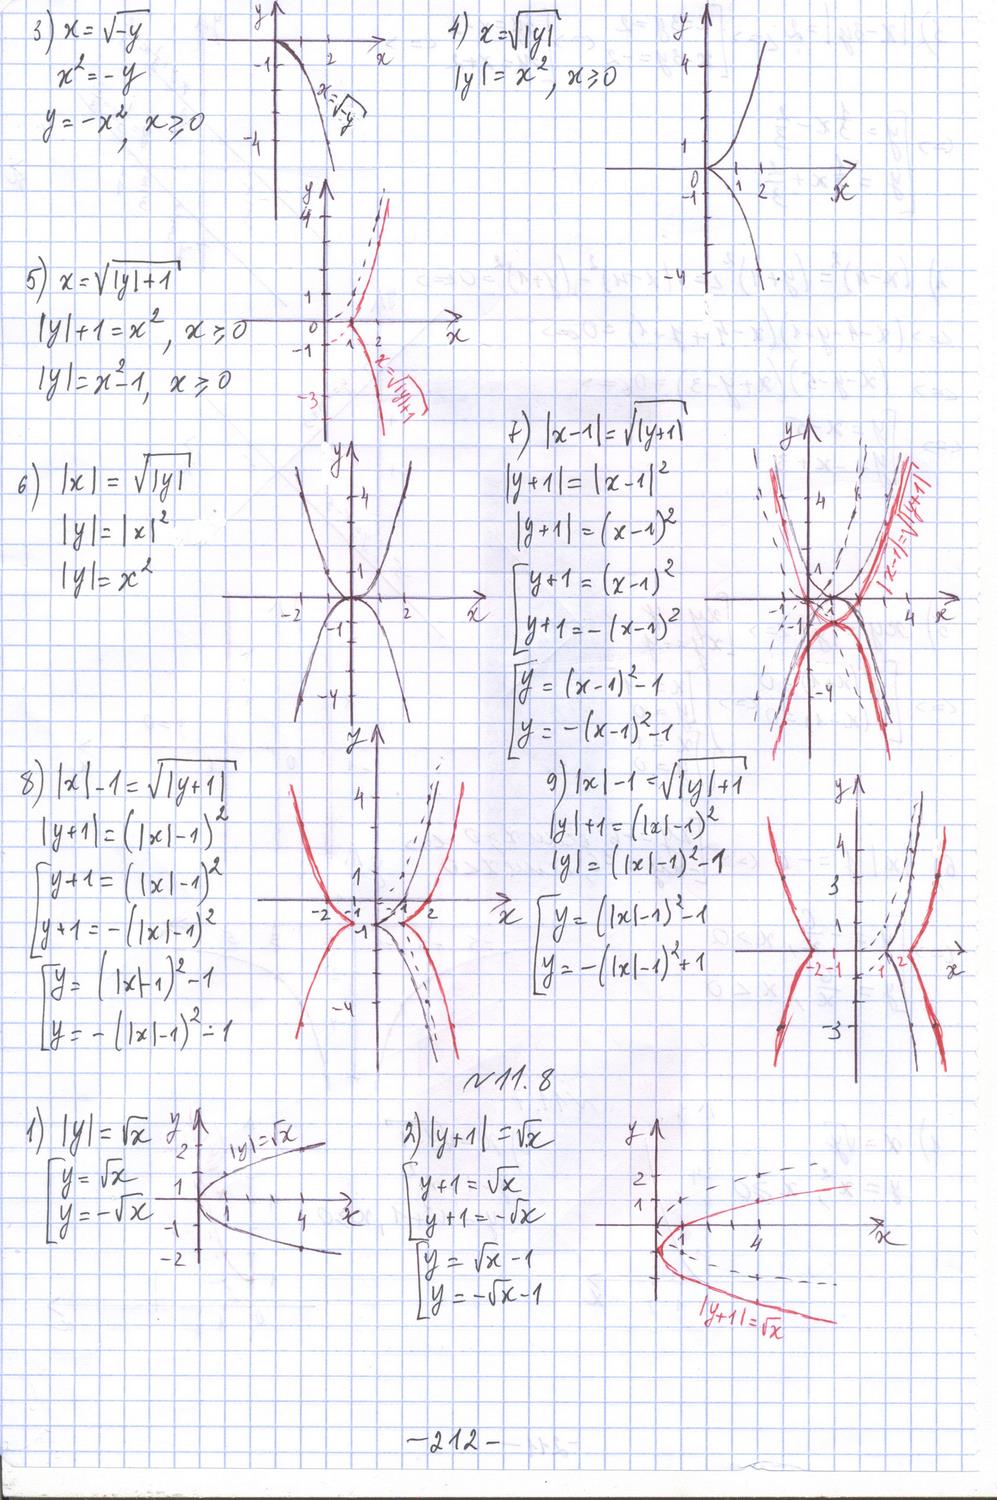 3) x = √-y
x² = -y
y = -x², x ⩾ 0
y
x
-1
2
-4
x = √-y
4) x = √|y|
|y| = x², x ⩾ 0
y
4
1
0
-1
1 2
x
-4
5) x = √|y|+1
|y|+1 = x², x ⩾ 0
|y| = x²-1, x ⩾ 0
y
4
1
0
-1
1 2
x
-3
x = √|y|+1
6) |x| = √|y|
|y| = |x|²
|y| = x²
y
4
1
-2 2 x
-1
-4
7) |x-1| = √|y+1|
|y+1| = |x-1|²
|y+1| = (x-1)²
y+1 = (x-1)²
y+1 = -(x-1)²
y = (x-1)²-1
y = -(x-1)²-1
y
4
1
-1 1 4 x
-1
-4
|x-1| = √|y+1|
8) |x|-1 = √|y+1|
|y+1| = (|x|-1)²
y+1 = (|x|-1)²
y+1 = -(|x|-1)²
y = (|x|-1)²-1
y = -(|x|-1)²-1
y
4
1
-2 -1 1 2 x
-1
-4
9) |x|-1 = √|y|+1
|y|+1 = (|x|-1)²
|y| = (|x|-1)²-1
y = (|x|-1)²-1
y = -(|x|-1)²+1
y
4
3
1
-2 -1 1 2 x
-3
№11.8
1) |y| = √x
y = √x
y = -√x
y
2
1
-1
-2
1 4 x
|y| = √x
2) |y+1| = √x
y+1 = √x
y+1 = -√x
y = √x-1
y = -√x-1
y
2
1
1 4 x
|y+1| = √x
-212-